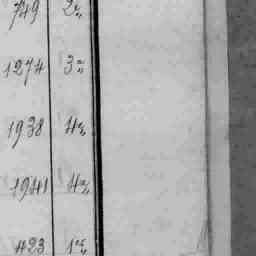 749 2"
1274 3"
1938 4"
1941 4"
423 1"